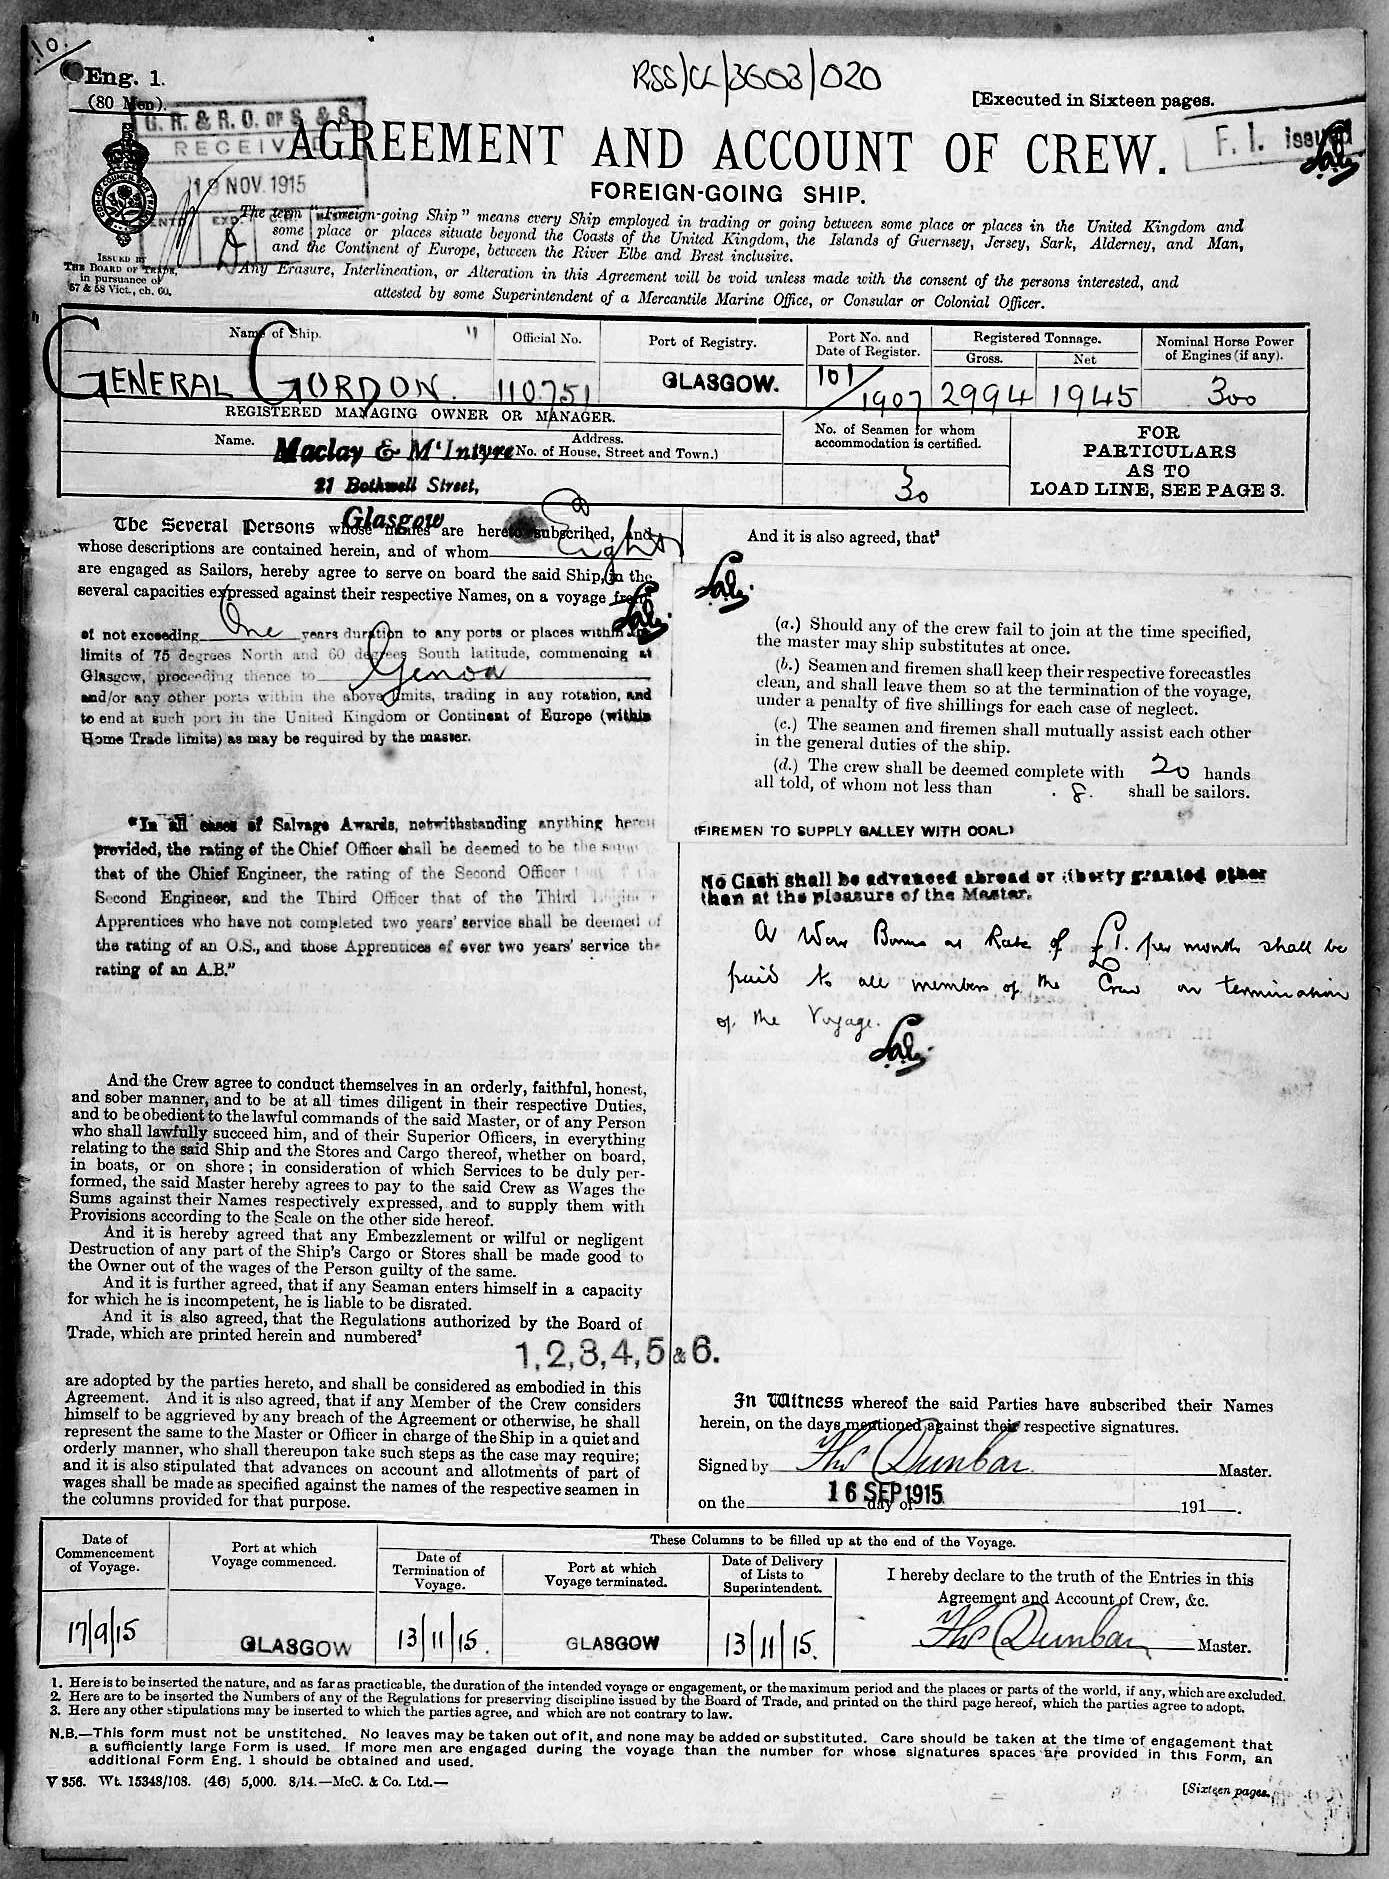 10.
Eng. 1.
(80 Men).
RSS/CL/3603/020
[Executed in Sixteen pages.
G. R. & R. O. OF S. & S.
RECEIVED
19 NOV. 1915
F. I. issued
AGREEMENT AND ACCOUNT OF CREW.
FOREIGN-GOING SHIP.
The term "Foreign-going Ship" means every Ship employed in trading or going between some place or places in the United Kingdom and
some place or places situate beyond the Coasts of the United Kingdom, the Islands of Guernsey, Jersey, Sark, Alderney, and Man,
and the Continent of Europe, between the River Elbe and Brest inclusive.
Any Erasure, Interlineation, or Alteration in this Agreement will be void unless made with the consent of the persons interested, and
attested by some Superintendent of a Mercantile Marine Office, or Consular or Colonial Officer.
ISSUED BY
THE BOARD OF TRADE,
in pursuance of
57 & 58 Vict., ch. 60.
Name of Ship.
Official No.
Port of Registry.
Port No. and
Date of Register.
Registered Tonnage.
Gross.
Net
Nominal Horse Power
of Engines (if any).
"GENERAL GORDON. 110,751 GLASGOW. 101/1907 2994 1945 300
REGISTERED MANAGING OWNER OR MANAGER.
Name.
Address.
No. of House, Street and Town.)
Maclay & McIntyre
21 Bothwell Street,
Glasgow
No. of Seamen for whom
accommodation is certified.
30
FOR
PARTICULARS
AS TO
LOAD LINE, SEE PAGE 3.
The Several Persons whose names are hereto subscribed, and
whose descriptions are contained herein, and of whom Eight
are engaged as Sailors, hereby agree to serve on board the said Ship, in the
several capacities expressed against their respective Names, on a voyage from
of not exceeding One years duration to any ports or places within the
limits of 75 degrees North and 60 degrees South latitude, commencing at
Glasgow, proceeding thence to Genoa
and/or any other ports within the above limits, trading in any rotation, and
to end at such port in the United Kingdom or Continent of Europe (within
Home Trade limits) as may be required by the master.
"In all cases of Salvage Awards, notwithstanding anything herein
provided, the rating of the Chief Officer shall be deemed to be the same
that of the Chief Engineer, the rating of the Second Officer that of the
Second Engineer, and the Third Officer that of the Third Engineer
Apprentices who have not completed two years' service shall be deemed of
the rating of an O.S., and those Apprentices of over two years' service the
rating of an A.B."
And the Crew agree to conduct themselves in an orderly, faithful, honest,
and sober manner, and to be at all times diligent in their respective Duties,
and to be obedient to the lawful commands of the said Master, or of any Person
who shall lawfully succeed him, and of their Superior Officers, in everything
relating to the said Ship and the Stores and Cargo thereof, whether on board,
in boats, or on shore; in consideration of which Services to be duly per-
formed, the said Master hereby agrees to pay to the said Crew as Wages the
Sums against their Names respectively expressed, and to supply them with
Provisions according to the Scale on the other side hereof.
And it is hereby agreed that any Embezzlement or wilful or negligent
Destruction of any part of the Ship's Cargo or Stores shall be made good to
the Owner out of the wages of the Person guilty of the same.
And it is further agreed, that if any Seaman enters himself in a capacity
for which he is incompetent, he is liable to be disrated.
And it is also agreed, that the Regulations authorized by the Board of
Trade, which are printed herein and numbered²
1, 2, 3, 4, 5 & 6.
are adopted by the parties hereto, and shall be considered as embodied in this
Agreement. And it is also agreed, that if any Member of the Crew considers
himself to be aggrieved by any breach of the Agreement or otherwise, he shall
represent the same to the Master or Officer in charge of the Ship in a quiet and
orderly manner, who shall thereupon take such steps as the case may require;
and it is also stipulated that advances on account and allotments of part of
wages shall be made as specified against the names of the respective seamen in
the columns provided for that purpose.
And it is also agreed, that³
(a.) Should any of the crew fail to join at the time specified,
the master may ship substitutes at once.
(b.) Seamen and firemen shall keep their respective forecastles
clean, and shall leave them so at the termination of the voyage,
under a penalty of five shillings for each case of neglect.
(c.) The seamen and firemen shall mutually assist each other
in the general duties of the ship.
(d.) The crew shall be deemed complete with 20 hands
all told, of whom not less than 8. shall be sailors.
(FIREMEN TO SUPPLY GALLEY WITH COAL)
No Cash shall be advanced abroad or liberty granted other
than at the pleasure of the Master.
A War Bonus at Rate of £1. per month shall be
paid to all members of the Crew on termination
of the Voyage.
In Witness whereof the said Parties have subscribed their Names
herein, on the days mentioned against their respective signatures.
Signed by Thos Dunbar Master.
on the 16 SEP 1915 day of 191 .
Date of
Commencement
of Voyage.
Port at which
Voyage commenced.
These Columns to be filled up at the end of the Voyage.
Date of
Termination of
Voyage.
Port at which
Voyage terminated.
Date of Delivery
of Lists to
Superintendent.
I hereby declare to the truth of the Entries in this
Agreement and Account of Crew, &c.
17/9/15 GLASGOW 13/11/15. GLASGOW 13/11/15. Thos Dunbar Master.
1. Here is to be inserted the nature, and as far as practicable, the duration of the intended voyage or engagement, or the maximum period and the places or parts of the world, if any, which are excluded.
2. Here are to be inserted the Numbers of any of the Regulations for preserving discipline issued by the Board of Trade, and printed on the third page hereof, which the parties agree to adopt.
3. Here any other stipulations may be inserted to which the parties agree, and which are not contrary to law.
N.B.—This form must not be unstitched. No leaves may be taken out of it, and none may be added or substituted. Care should be taken at the time of engagement that
a sufficiently large Form is used. If more men are engaged during the voyage than the number for whose signatures spaces are provided in this Form, an
additional Form Eng. 1 should be obtained and used.
V 856. Wt. 15348/108. (46) 5,000. 8/14.—McC. & Co. Ltd.—
[Sixteen pages.